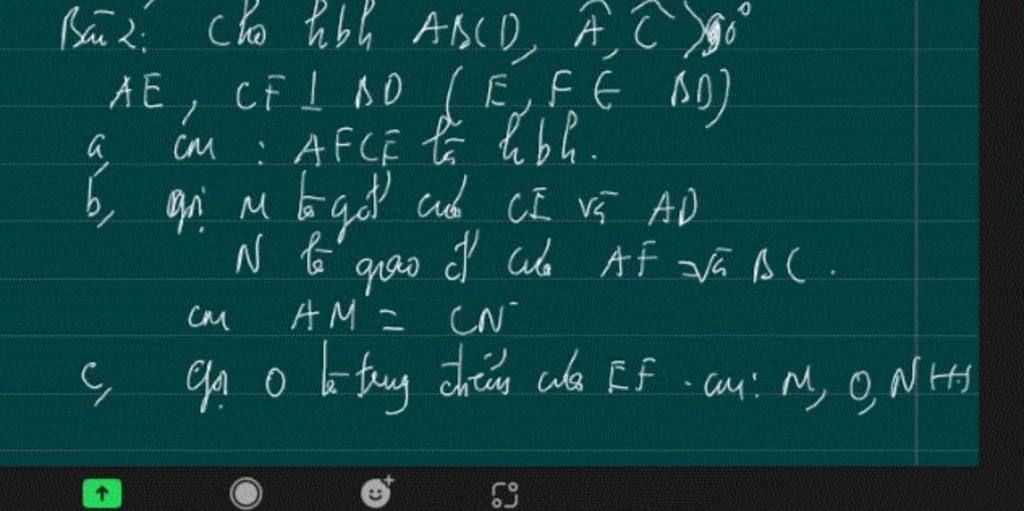 Bài 2: Cho hbh ABCD, Â, Ĉ > 90°
AE, CF ⊥ BD (E, F ∈ BD)
a, cm : AFCE là hbh.
b, gọi M là gđ' của CE và AD
N là giao đ' của AF và BC.
cm AM = CN
c, gọi O là trung điểm của EF. cm: M, O, N t.h